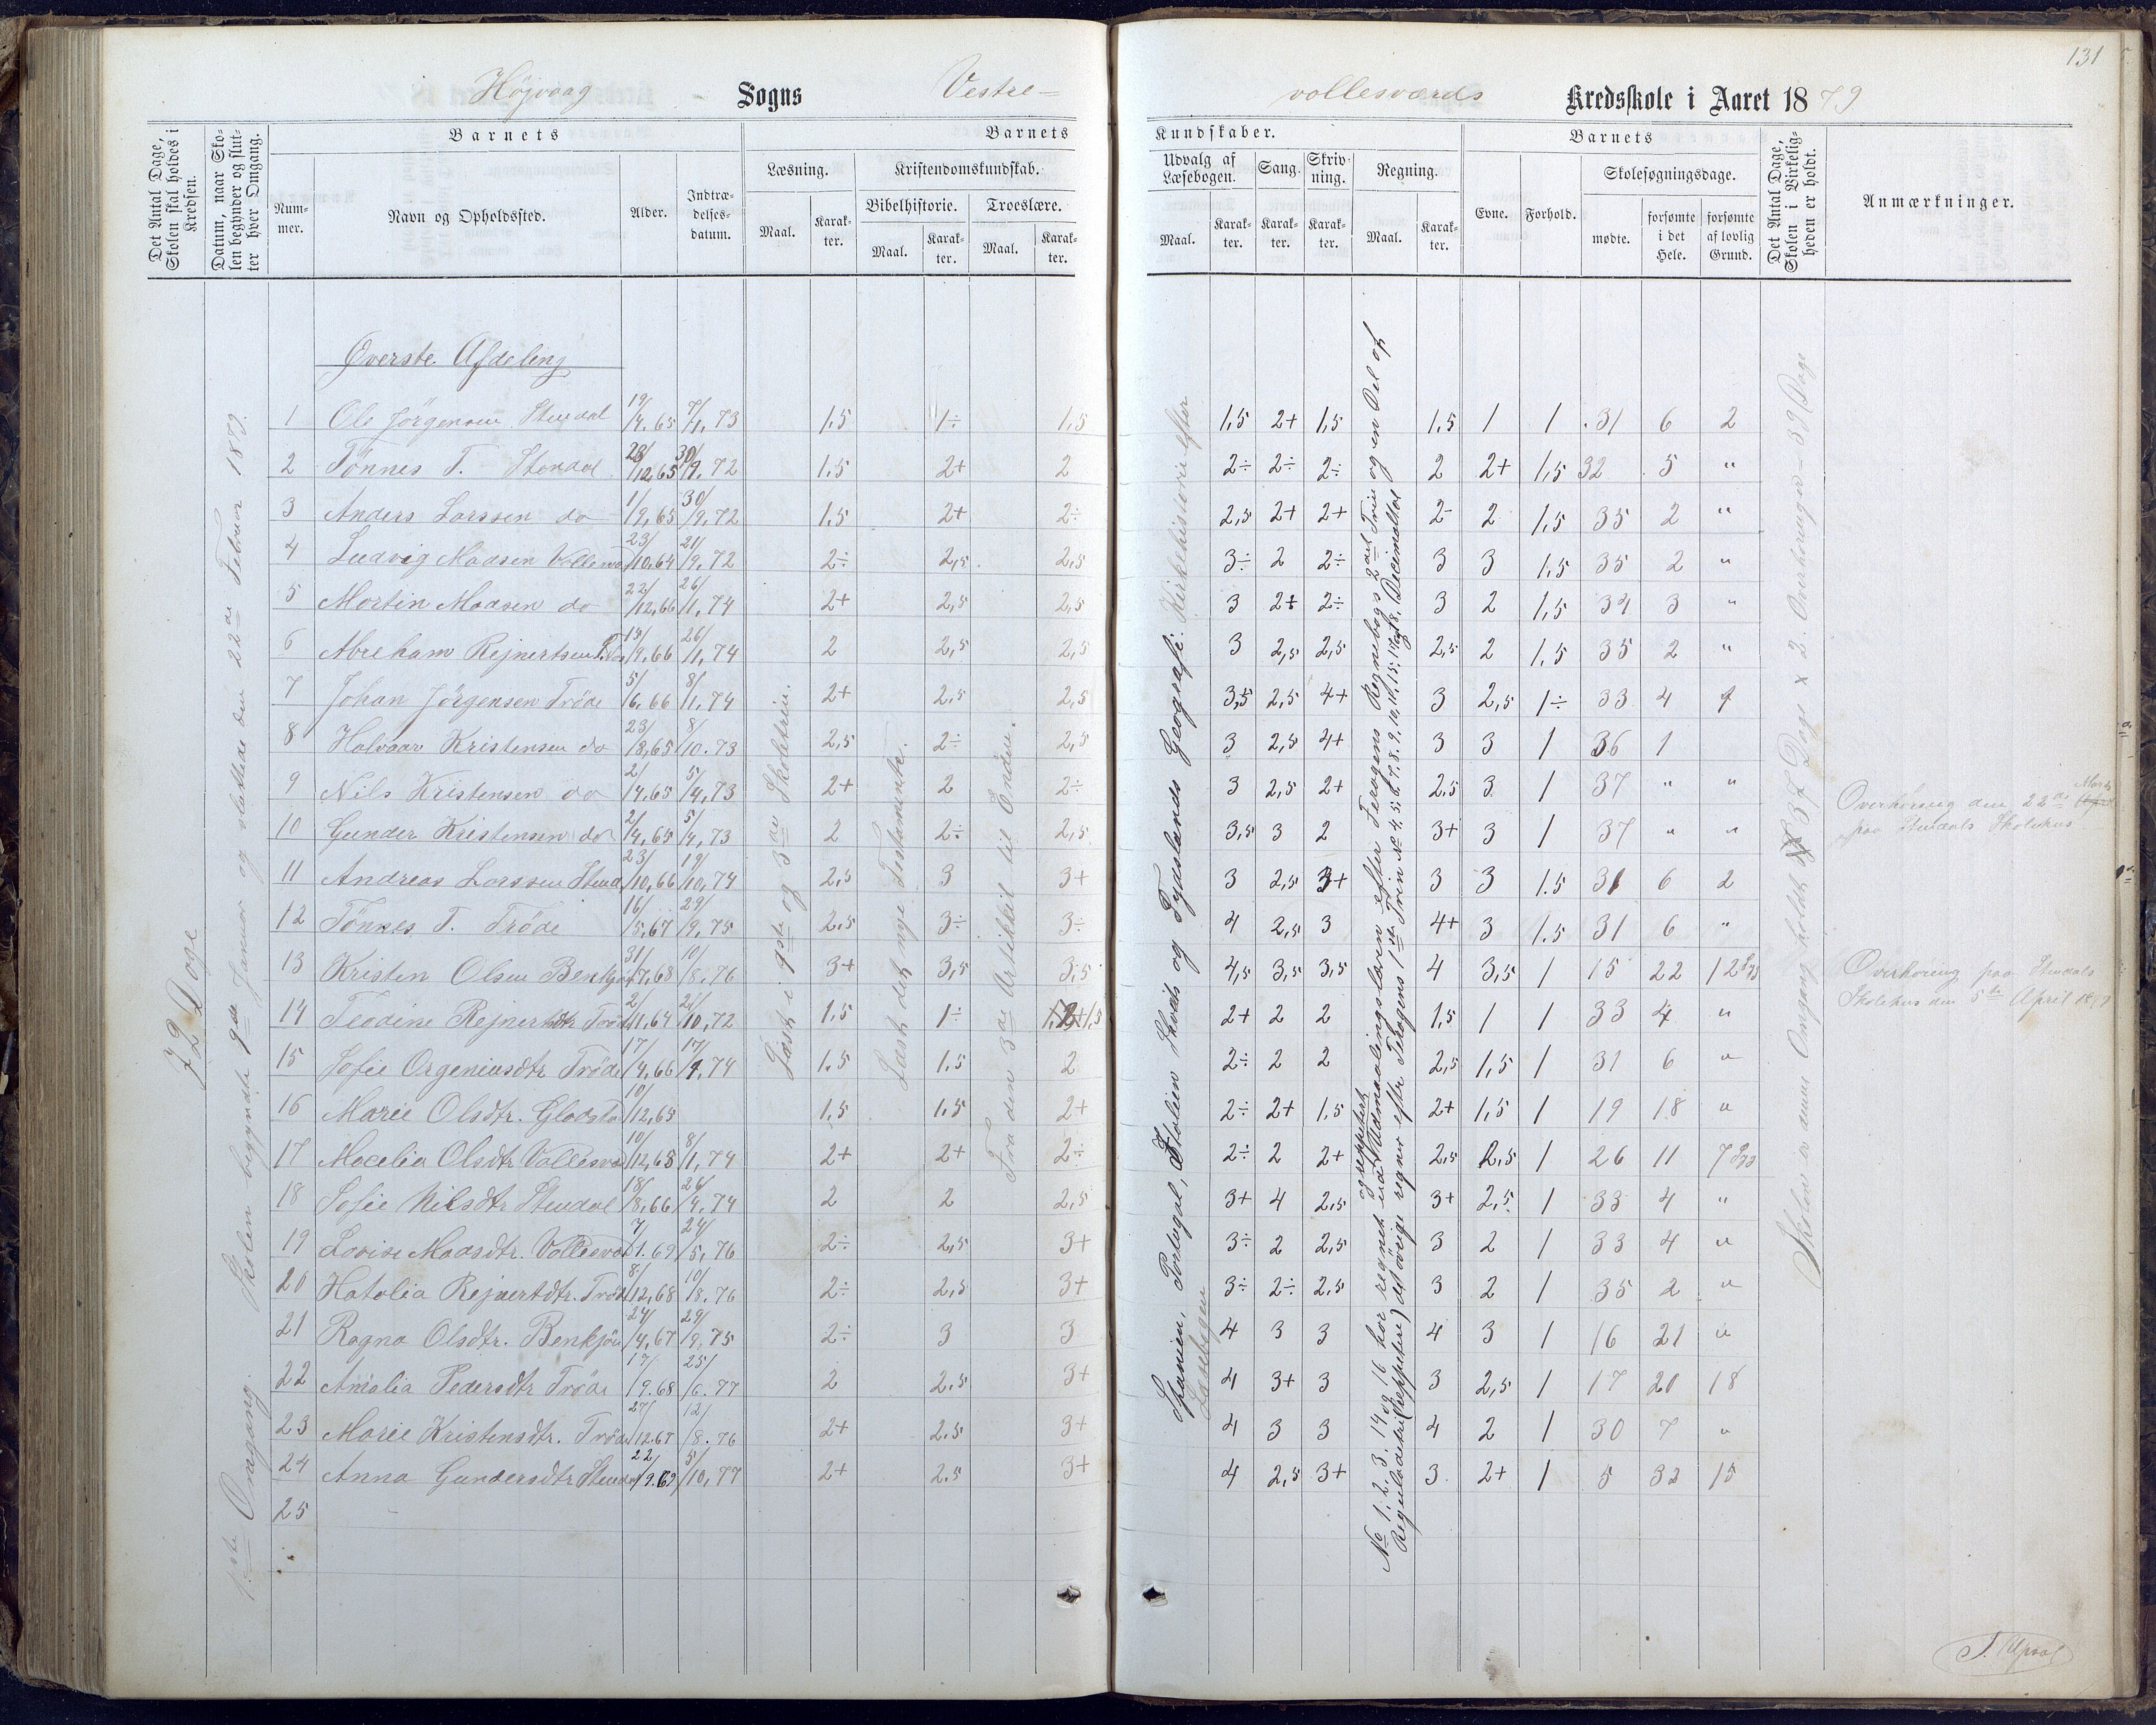 131
Højvaag - Sogns Vestre-
vollesværds Kredsskole i Aaret 1879
Det Antal Dage, Skolen skal holdes i Kredsen.
Datum, naar Skolen begynder og slutter hver Omgang.
Barnets
Nummer.
Navn og Opholdssted.
Alder.
Indtrædelsesdatum.
Barnets
Læsning.
Maal.
Karakter.
Kristendomskundskab.
Bibelhistorie.
Maal.
Karakter.
Troeslære.
Maal.
Karakter.
Kundskaber.
Udvalg af Læsebogen.
Maal.
Karakter.
Sang.
Karakter.
Skrivning.
Karakter.
Regning.
Maal.
Karakter.
Barnets
Evne.
Forhold.
Skolesøgningsdage.
mødte.
forsømte i det Hele.
forsømte af lovlig Grund.
Det Antal Dage, Skolen i Virkeligheden er holdt.
Anmærkninger.
72 Dage
1ste Omgang. Skolen begyndte 9de Januar og sluttede den 22de Februar 1879.
Øverste Afdeling
1 Ole Jörgensen Stendal 19/4,65 7/1,73 1,5 1÷ 1,5 1,5 2+ 1,5 1,5 1 1 31 6 2
2 Tönnes T. Stendal 28/12,65 30/9,72 1,5 2+ 2 2÷ 2÷ 2÷ 2 2+ 1,5 32 5 "
3 Anders Larssen do 1/9,65 30/9,72 1,5 2+ 2÷ 2,5 2+ 2+ 2- 2 1,5 35 2 "
4 Ludvig Madsen Vollesv 23/10,64 21/9,72 2÷ 2,5 2,5 3÷ 2 2÷ 3 3 1,5 35 2 "
5 Mortin Madsen do 22/12,66 26/1,74 2+ 2,5 2,5 3 2+ 2÷ 3 2 1,5 34 3 "
6 Abreham Rejnertsen 15/9,66 26/1,74 2 2,5 2,5 3 2,5 2,5 2,5 2 1,5 35 2 "
7 Johan Jörgensen Tröde 5/6,66 8/1,74 2+ 2,5 2,5 3,5 2,5 4+ 3 2,5 1÷ 33 4 4
8 Halvaar Kristensen do 23/8,65 8/10.73 2,5 2÷ 2,5 3 2,5 4+ 3 3 1 36 1
9 Nils Kristensen do 2/4,65 5/4,73 2+ 2 2÷ 3 2,5 2+ 2,5 3 1 37 " "
10 Gunder Kristensen do 2/4,65 5/4,73 2 2÷ 2,5 3,5 3 2 3+ 3 1 37 " "
11 Andreas Larssen Stend 23/10,66 19/10,74 2,5 3 3+ 3 2,5 3+ 3 3 1.5 31 6 2
12 Tönnes T. Tröde 16/5,67 29/9,75 2,5 3÷ 3÷ 4 2,5 3 4+ 3 1.5 31 6 "
13 Kristen Olsen Benkjön 31/7,68 10/8.76 3+ 3,5 3,5 4,5 3,5 3,5 4 3,5 1 15 22 12
14 Teodine Rejnertsdtr Tröd 2/11,64 21/10,72 1,5 1÷ 1,5 2+ 2 2 1,5 1 1 33 4 "
15 Sofie Orgeniusdtr Tröde 17/4,66 17/1,74 1,5 1,5 2 2÷ 2 2 2,5 1,5 1 31 6 "
16 Marie Olsdtr. Glodsta 10/12,65 1,5 1,5 2+ 2÷ 2+ 1,5 2+ 1,5 1 19 18 "
17 Macelia Olsdtr Vollesvæ 10/12,68 8/1,74 2+ 2+ 2÷ 2÷ 2 2+ 2,5 2,5 1 26 11 7
18 Sofie Nilsdtr Stendal 18/8,66 26/4,74 2 2 2,5 3+ 4 2,5 3+ 2,5 1 33 4 "
19 Lovise Madsdtr. Vollesvæ 7/1.69 24/5,76 2÷ 2,5 3+ 3÷ 2 2,5 3 2 1 33 4 "
20 Hatolia Rejnertdtr. Tröd 8/12,68 10/8.76 2÷ 2,5 3+ 3÷ 2÷ 2,5 3 2 1 35 2 "
21 Ragna Olsdtr. Benkjön 24/4,67 29/9,75 2÷ 3 3 4 3 3 4 3 1 16 21 "
22 Amalia Pedersdtr Tröde 17/9.68 25/6.77 2 2,5 3+ 4 3+ 3 3 2,5 1 17 20 18
23 Marie Kristensdtr. Tröde 27/12.67 12/8.76 2+ 2,5 3+ 4 3 3 4 2 1 30 7 "
24 Anna Gundersdtr Stendal 22/9.69 5/10,77 2+ 2.5 3+ 4 2,5 3+ 3 2+ 1 5 32 15
25
Læst i 1ste og 3de Skoletrin.
Læst det nye Testamente.
Fra den 3de Artikkel til Enden.
Spanien, Portugal, Italien Skveits og Tydsklands Geografi. Kirkehistorie efter Læsebogen
No 1, 2, 3, 14 og 16 har regnet og repeteret ud Udmaalingslæren efter Feragens Regnebogs 2det Trin og en Del af Reguladetri (Reppetere) de övrige regner efter Feragens 1ste Trin No 4, 5, 6, 7, 8, 9, 10, 11, 15, 17 og 18, Decimaltal
Skolen er denne Omgang holdt 37 Dage x 2 Overhøringer = 39 Dage
Overhøring den 22de Marts
paa Stendals Skolehus
Overhøring paa Stendals
Skolehus den 5te April 1879
T. Upsal